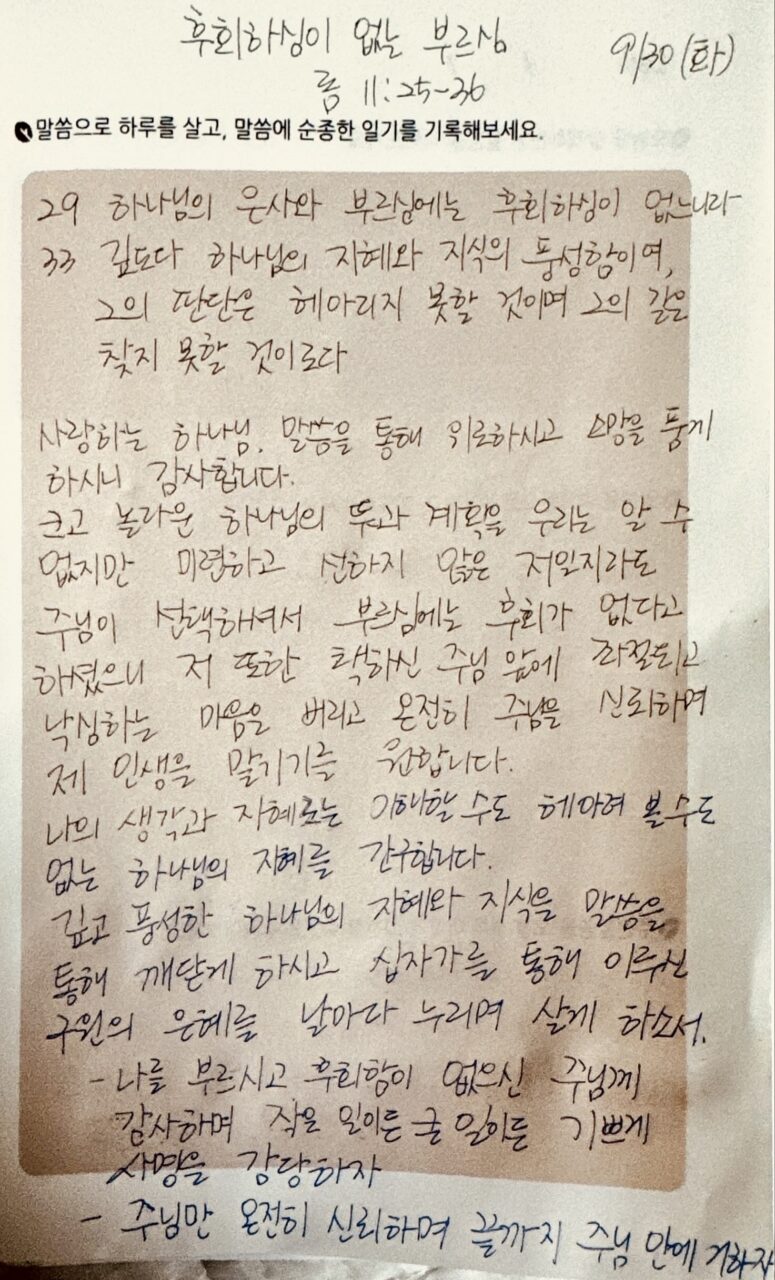 후회하심이 없는 부르심 9/30 (화)
롬 11:25-36
말씀으로 하루를 살고, 말씀에 순종한 일기를 기록해보세요.
29 하나님의 은사와 부르심에는 후회하심이 없느니라
33 깊도다 하나님의 지혜와 지식의 풍성함이여,
그의 판단은 헤아리지 못할 것이며 그의 길은
찾지 못할 것이로다
사랑하는 하나님. 말씀을 통해 위로하시고 소망을 품게
하시니 감사합니다.
크고 놀라운 하나님의 뜻과 계획을 우리는 알 수
없지만 미련하고 선하지 않은 저일지라도
주님이 선택하셔서 부르심에는 후회가 없다고
하셨으니 저 또한 택하신 주님 앞에 좌절되고
낙심하는 마음을 버리고 온전히 주님을 신뢰하며
제 인생을 맡기기를 원합니다.
나의 생각과 지혜로는 이해할 수도 헤아려 볼 수도
없는 하나님의 지혜를 간구합니다.
깊고 풍성한 하나님의 지혜와 지식을 말씀을
통해 깨닫게 하시고 십자가를 통해 이루신
구원의 은혜를 날마다 누리며 살게 하소서.
- 나를 부르시고 후회함이 없으신 주님께
감사하며 작은 일이든 큰 일이든 기쁘게
사명을 감당하자
- 주님만 온전히 신뢰하며 끝까지 주님 안에 거하자